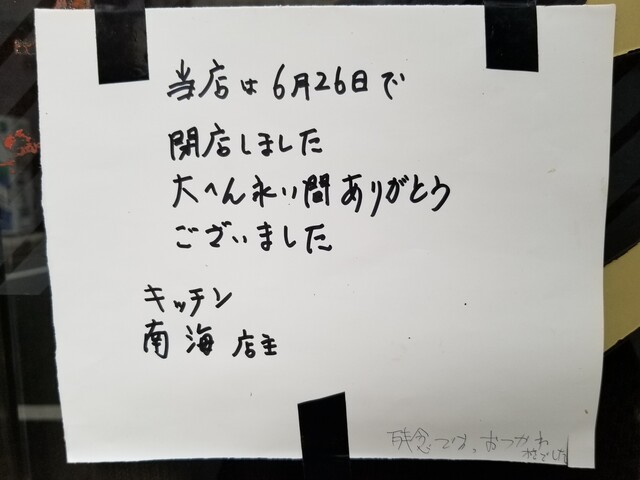 当店は6月26日で
閉店しました
大へん永い間ありがとう
ございました
キッチン
南海 店主
残念です。おつかれ
さまでした